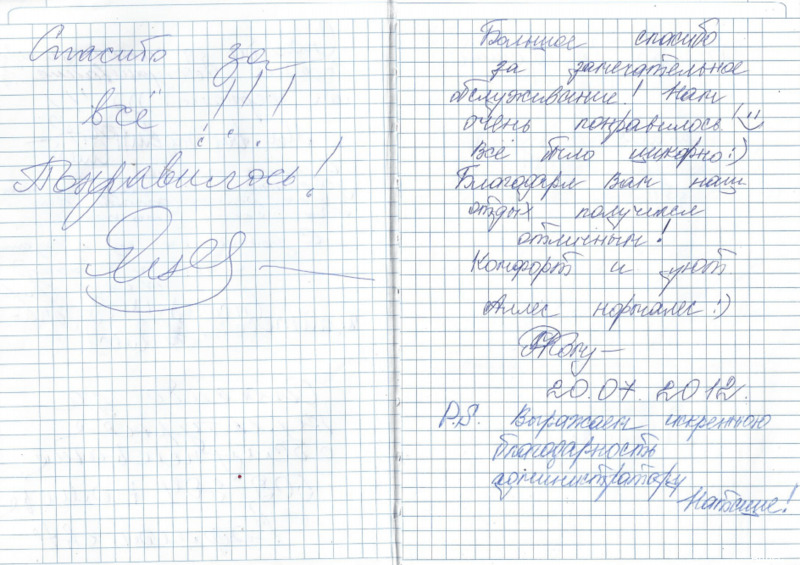 Спасибо за
всё!!!
Понравилось!
Большое спасибо
за замечательное
обслуживание! Нам
очень понравилось!
Всё было шикарно:)
Благодаря Вам наш
отдых получился
отличным!
Комфорт и уют
Аллес нормалес:)
20.07.2012.
P.S. Выражаем искреннюю
благодарность
администратору
Наташе!